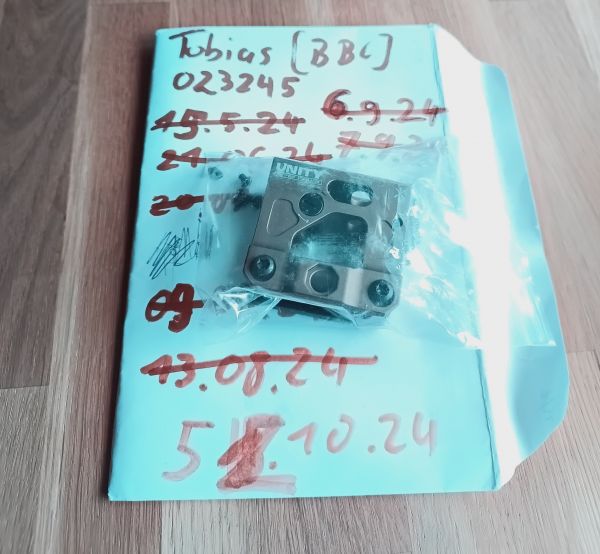 Tobias [BBC]
023245
15.5.24 6.9.24
24.06.24 7.9.24
20
UNITY
13.08.24
5 .10.24